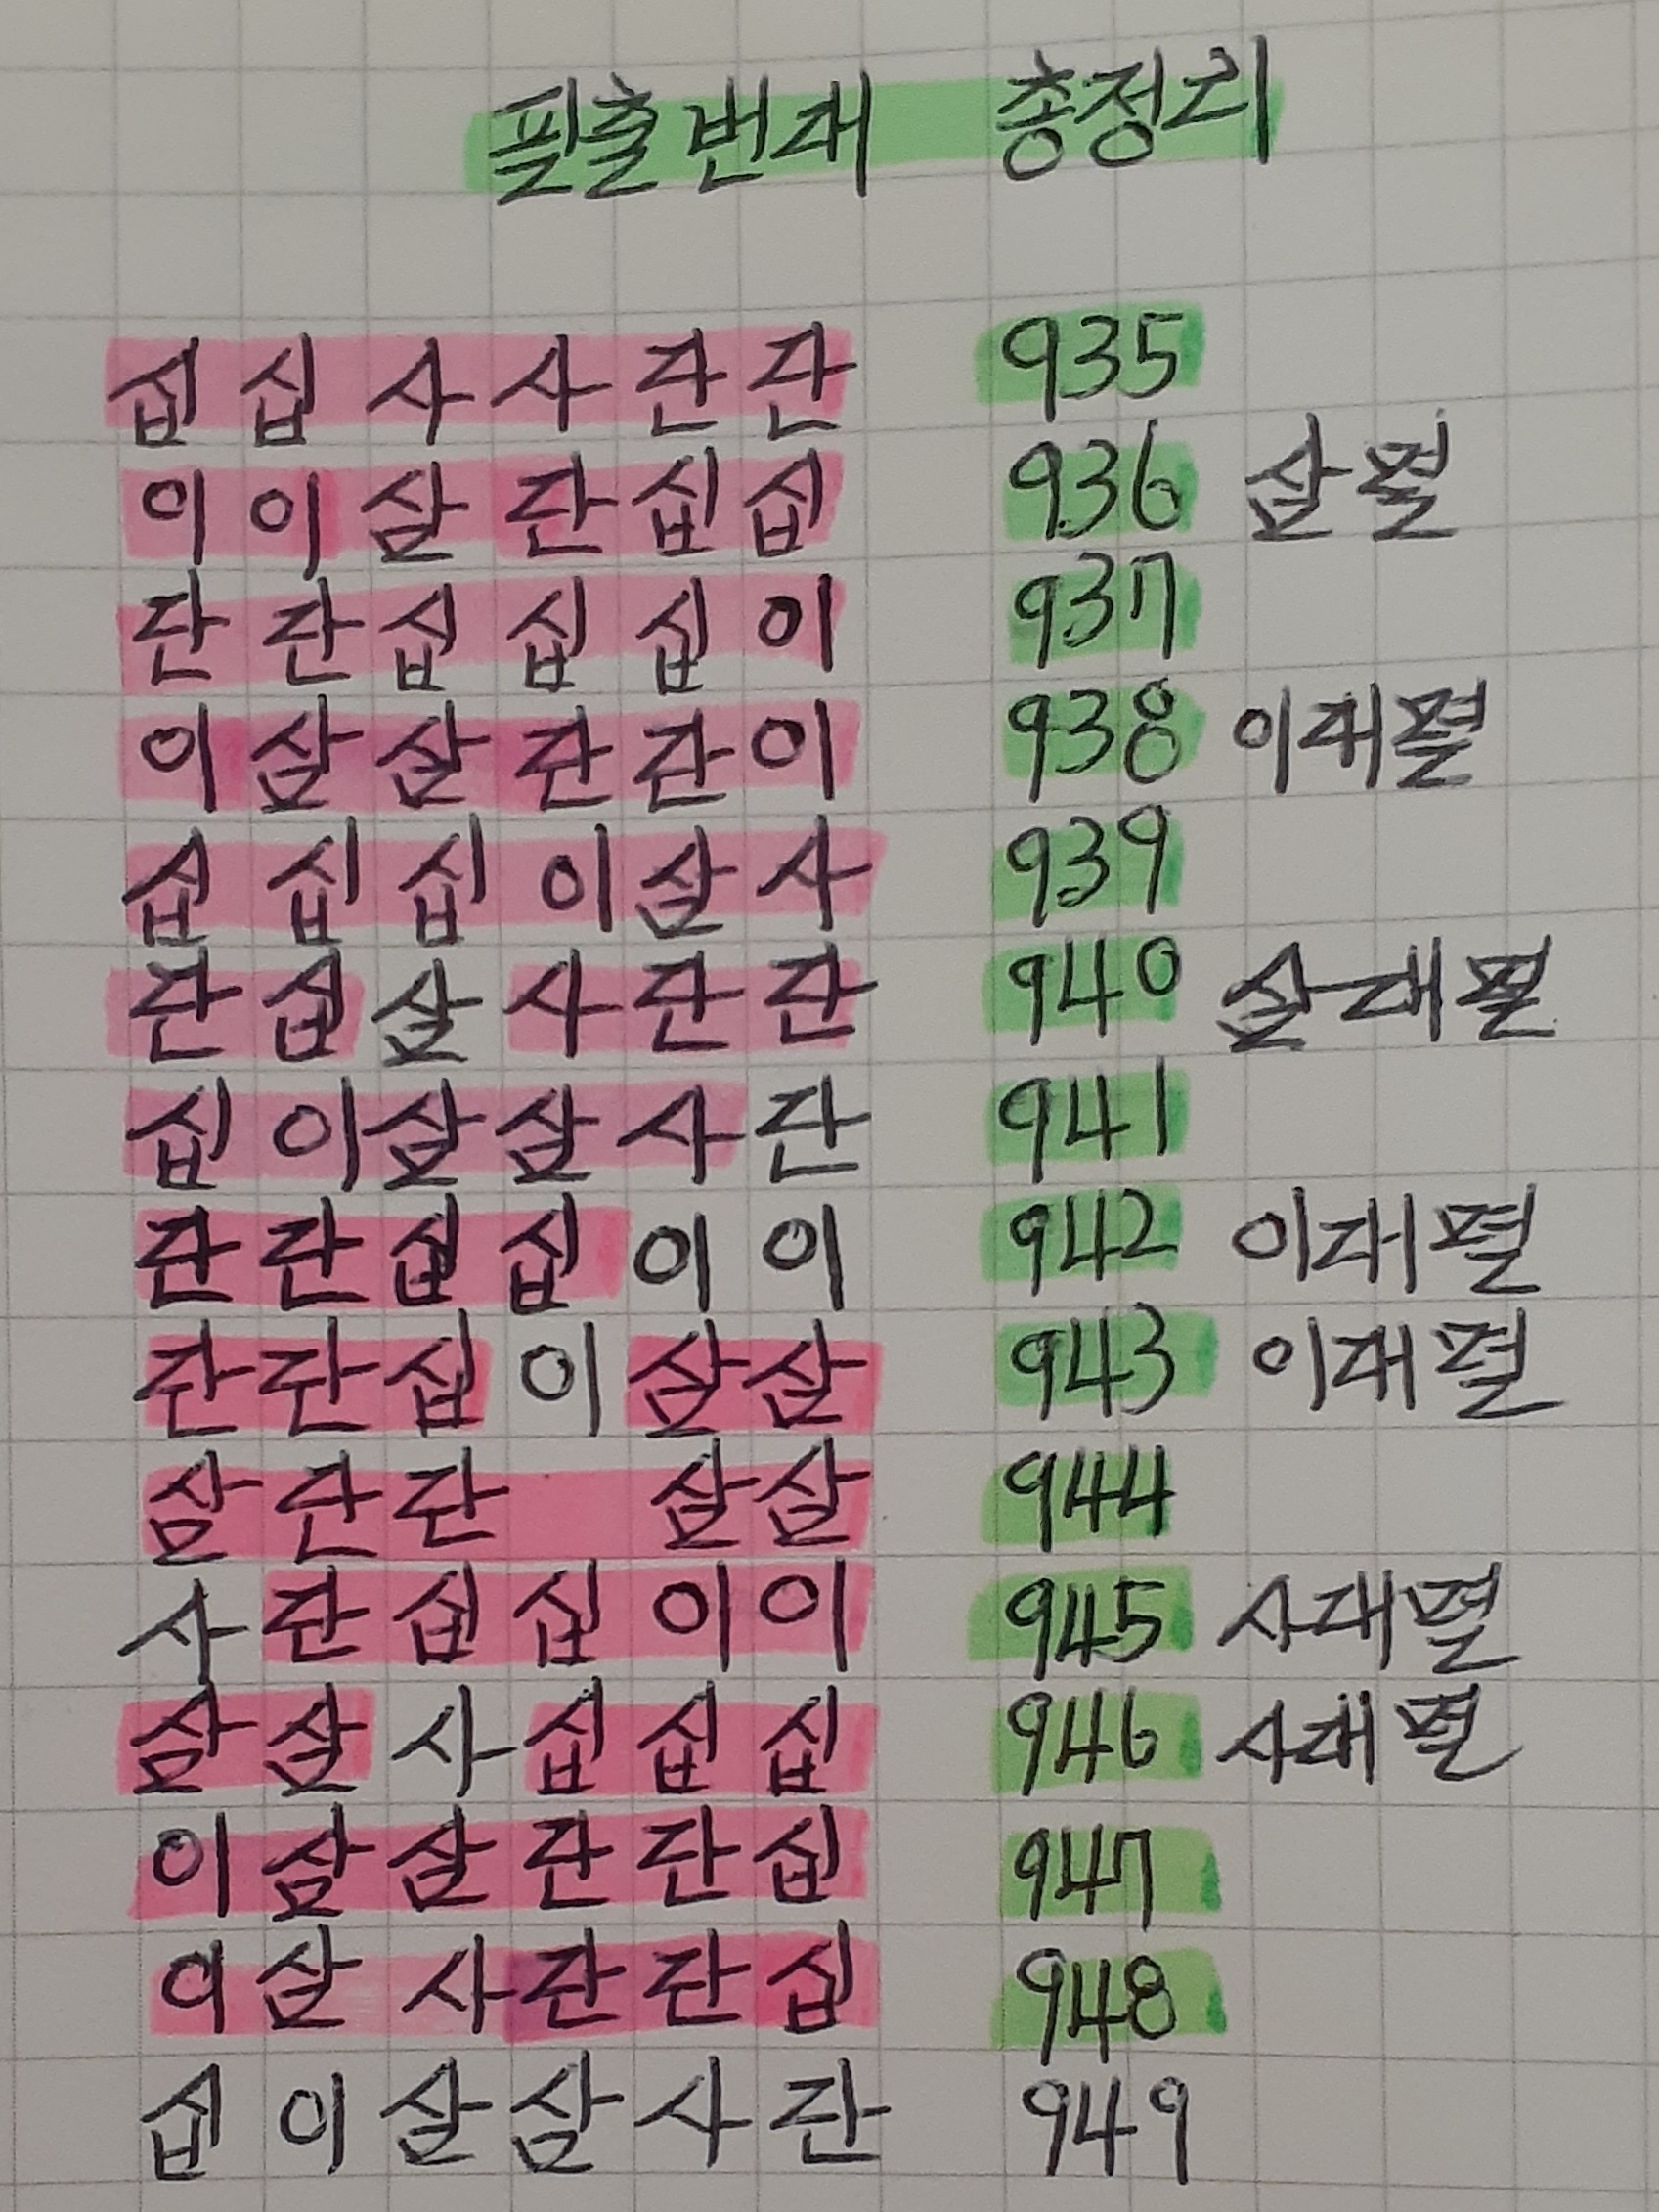 필출번대 총정리
십 십 사 사 단 단 935
이 이 삼 단 십 십 936 삼멸
단 단 십 십 십 이 937
이 삼 삼 단 단 이 938 이대멸
십 십 십 이 삼 사 939
단 십 삼 사 단 단 940 삼대멸
십 이 삼 삼 사 단 941
단 단 십 십 이 이 942 이대멸
단 단 십 이 삼 삼 943 이대멸
삼 단 단 삼 삼 944
사 단 십 십 이 이 945 사대멸
삼 삼 사 십 십 십 946 사대멸
이 삼 삼 단 단 십 947
이 삼 사 단 단 십 948
십 이 삼 삼 사 단 949